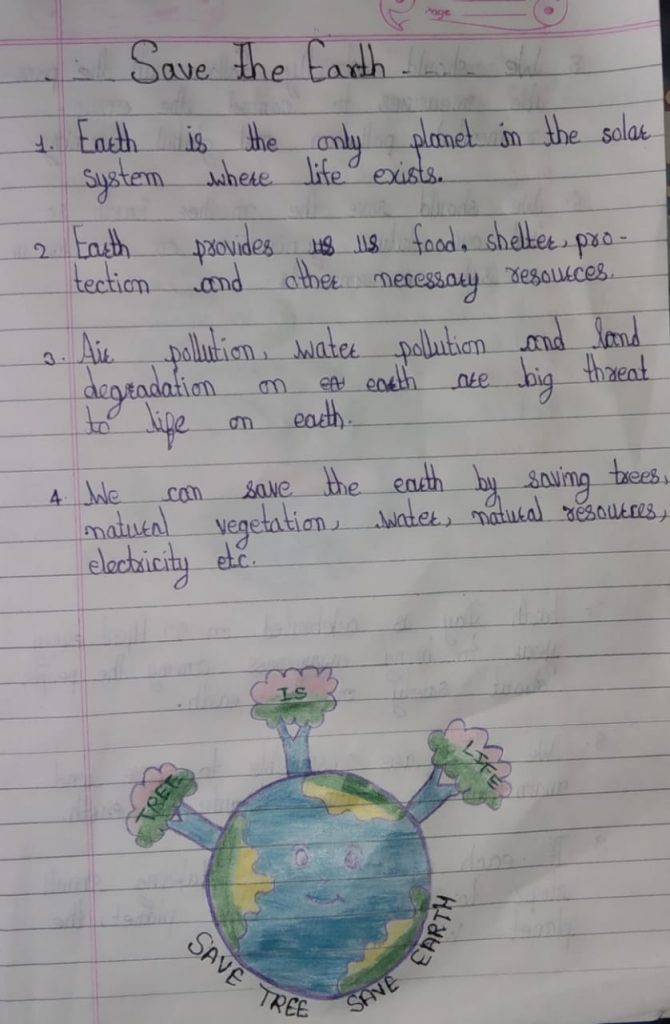 Page
Save the Earth
1. Earth is the only planet in the solar
system where life exists.
2. Earth provides us us food, shelter, pro-
tection and other necessary resources.
3. Air pollution, water pollution and land
degradation on ea earth are big threat
to life on earth.
4. We can save the earth by saving trees,
natural vegetation, water, natural resources,
electricity etc.
IS
TREE
LIFE
SAVE TREE SAVE EARTH